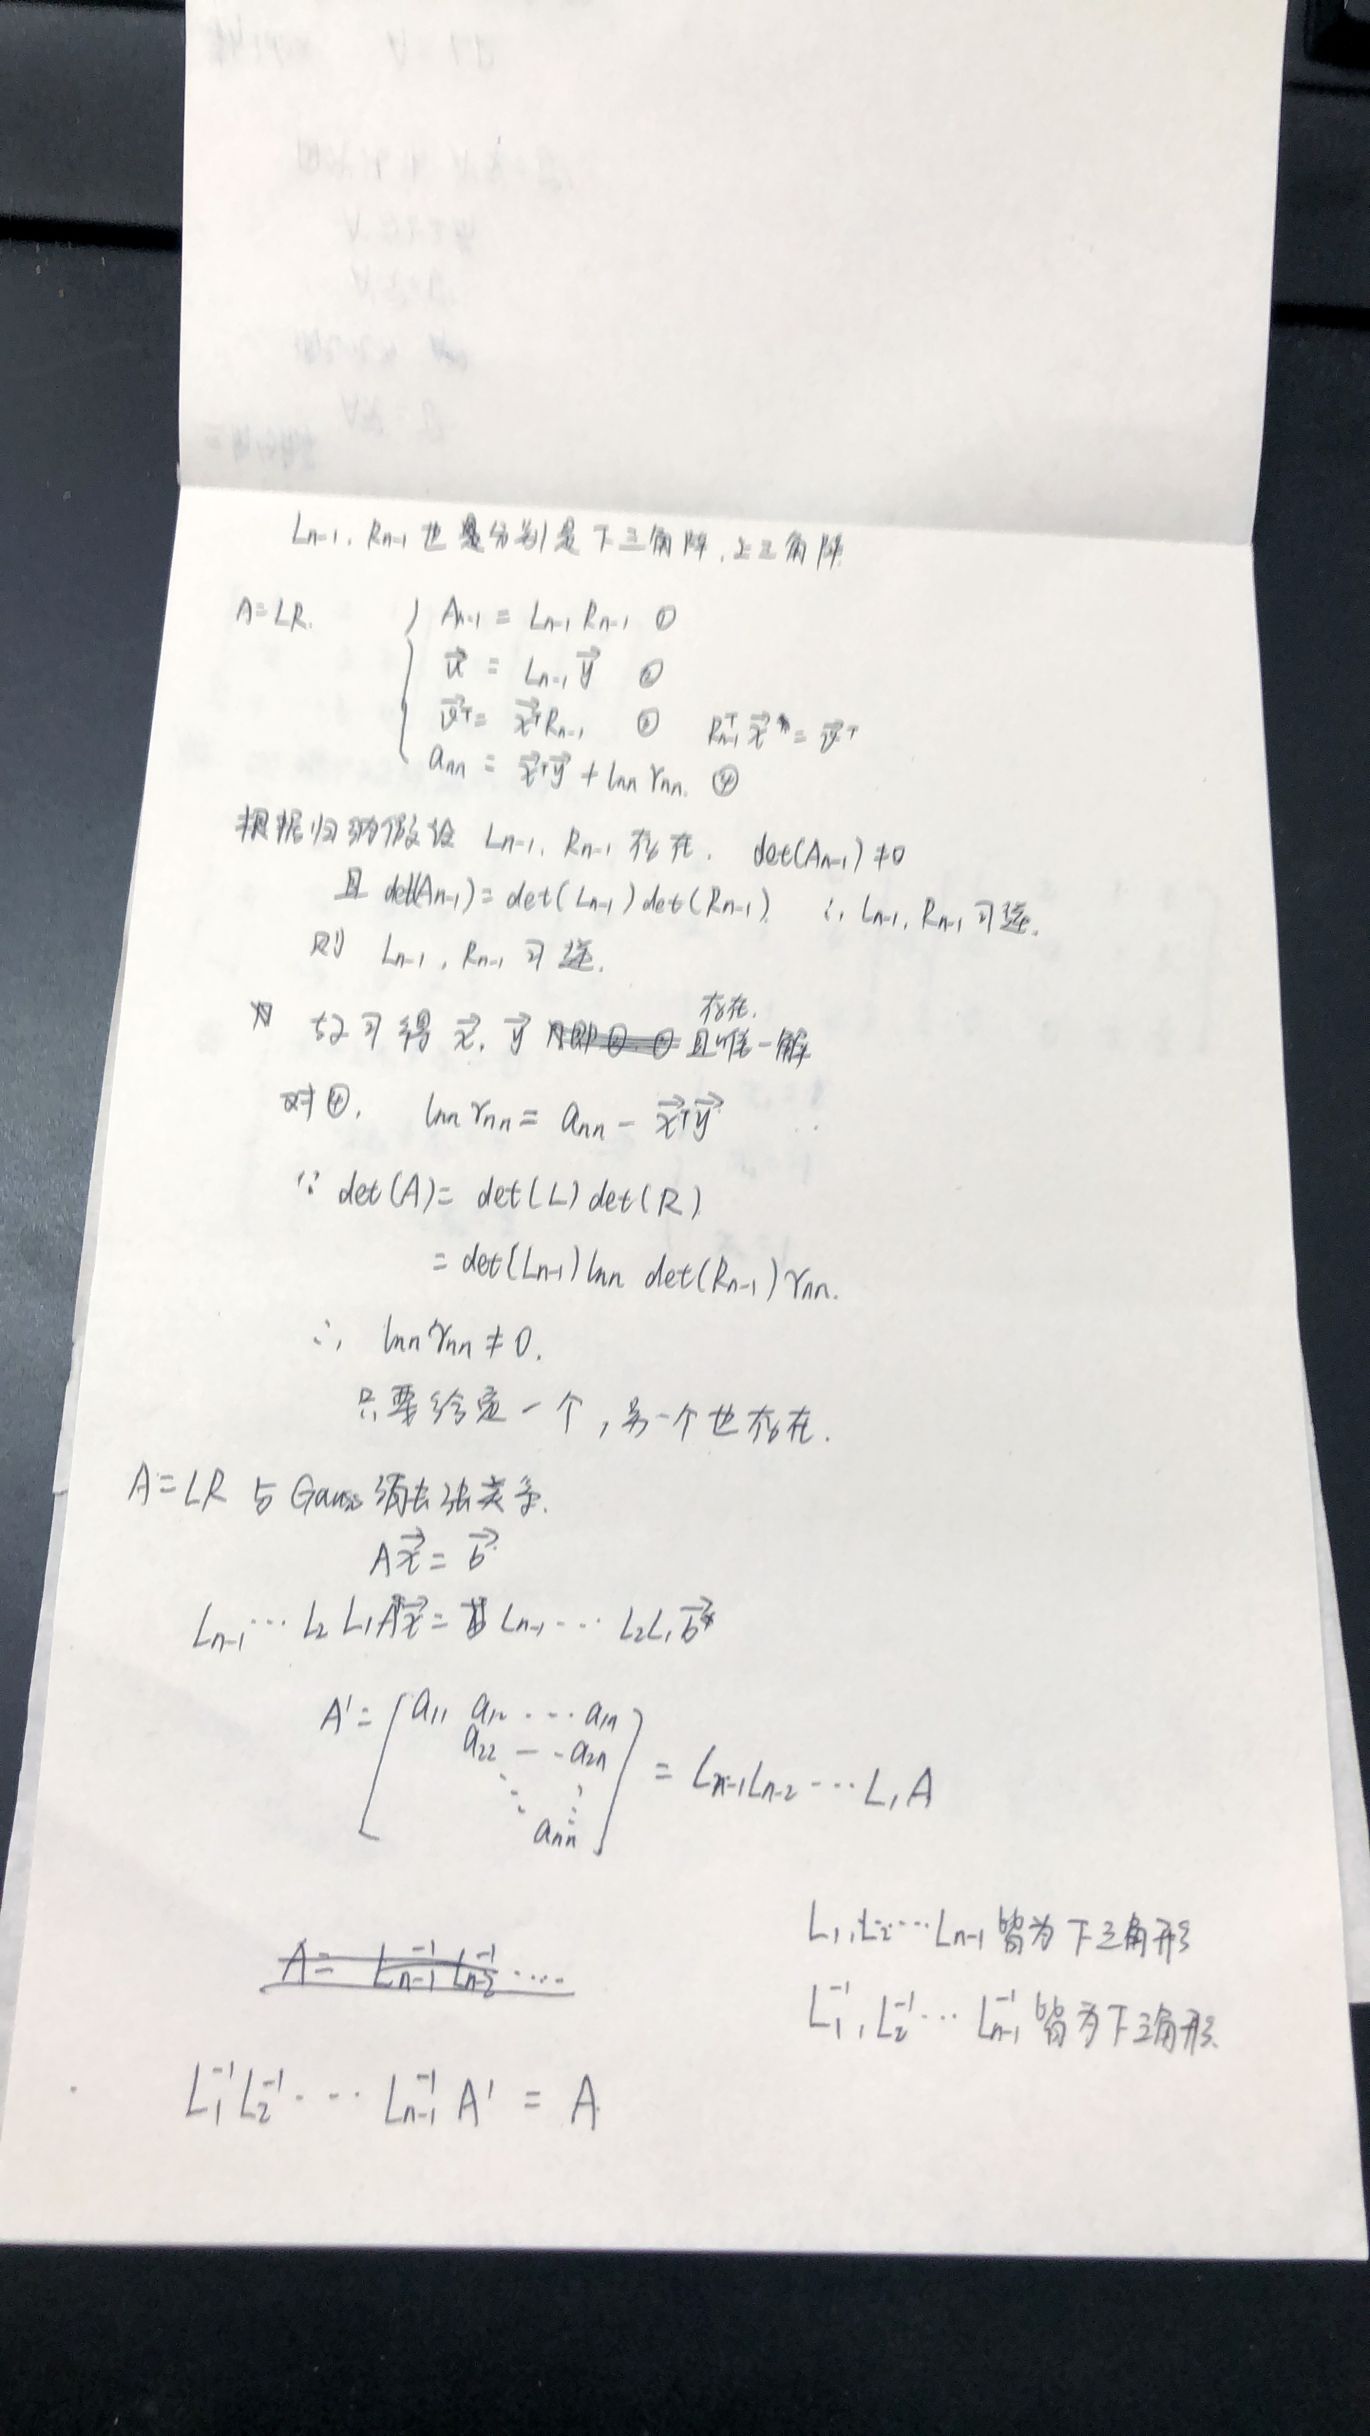 Lₙ₋₁, Rₙ₋₁ 也是分别是下三角阵, 上三角阵
A=LR. { Aₙ₋₁ = Lₙ₋₁Rₙ₋₁ ①
u⃗ = Lₙ₋₁y⃗ ②
v⃗ᵀ = x⃗ᵀRₙ₋₁ ③ Rₙ₋₁ᵀ x⃗ = v⃗ᵀ
aₙₙ = x⃗ᵀy⃗ + lₙₙrₙₙ. ④
根据归纳假设 Lₙ₋₁, Rₙ₋₁ 存在. det(Aₙ₋₁)≠0
且 det(Aₙ₋₁) = det(Lₙ₋₁)det(Rₙ₋₁) ∴ Lₙ₋₁, Rₙ₋₁ 可逆.
则 Lₙ₋₁, Rₙ₋₁ 可逆.
存在.
故可得 x⃗, y⃗ 且唯一解
对④, lₙₙrₙₙ = aₙₙ - x⃗ᵀy⃗
∵ det(A) = det(L)det(R)
= det(Lₙ₋₁)lₙₙ det(Rₙ₋₁)rₙₙ.
∴ lₙₙrₙₙ≠0.
只要给定一个, 另一个也存在.
A=LR 与 Gauss 消去法关系.
Ax⃗ = b⃗
Lₙ₋₁ ··· L₂ L₁Ax⃗ = Lₙ₋₁ ··· L₂L₁b⃗
A' = [ a₁₁ a₁₂ ··· a₁ₙ
a₂₂ — - a₂ₙ
⋱ ⋮
aₙₙ ] = Lₙ₋₁Lₙ₋₂ ··· L₁A
L₁, L₂ ··· Lₙ₋₁ 皆为下三角形
A = Lₙ₋₁⁻¹ Lₙ₋₂⁻¹ ····
L₁⁻¹, L₂⁻¹ ··· Lₙ₋₁⁻¹ 皆为下三角形.
L₁⁻¹L₂⁻¹ ··· Lₙ₋₁⁻¹ A' = A